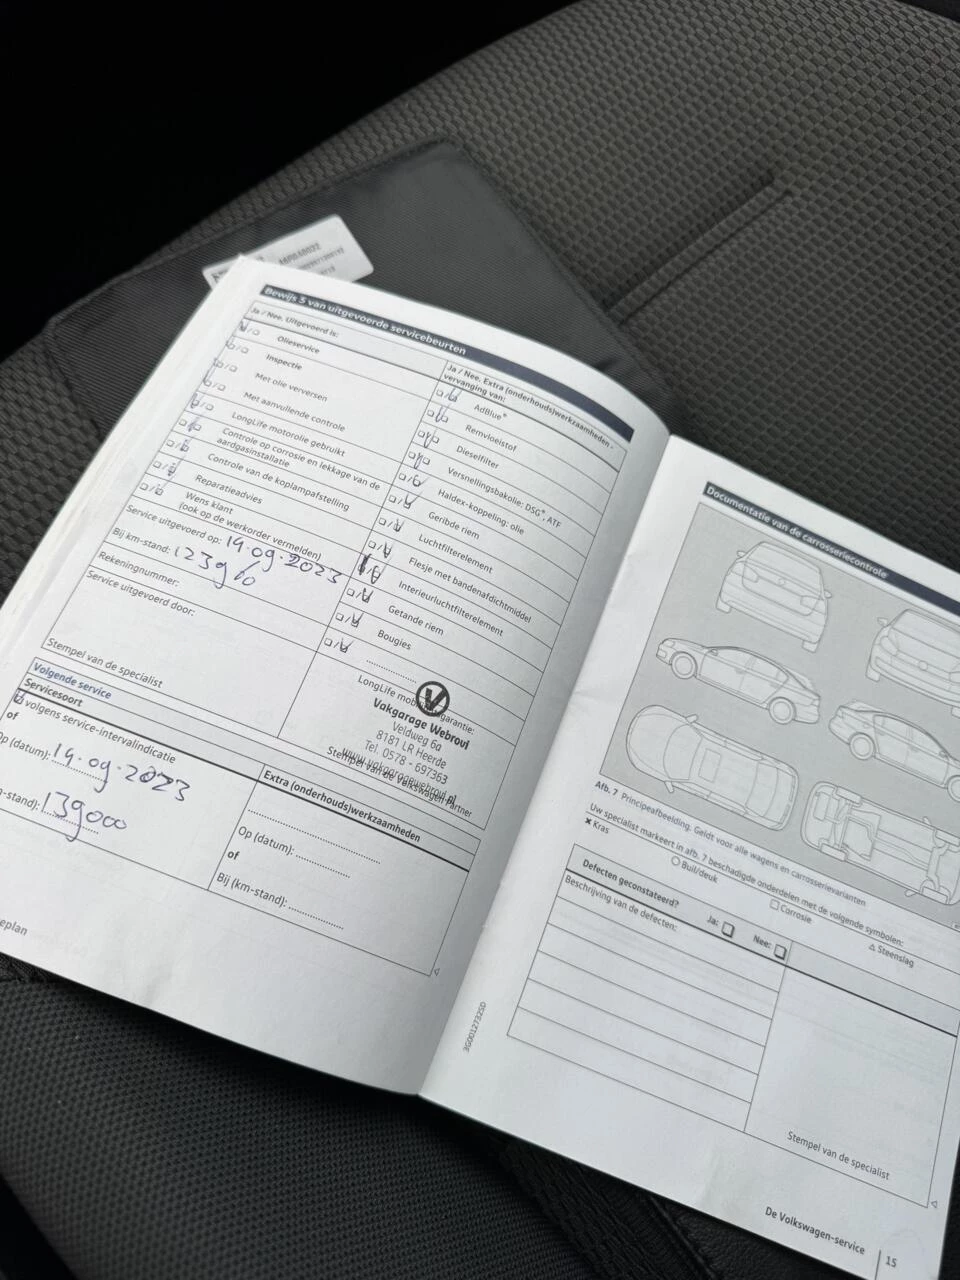 A0RA0022
Bewijs 5 van uitgevoerde servicebeurten
Ja / Nee. Uitgevoerd is:
Olieservice
Inspectie
Met olie verversen
Met aanvullende controle
LongLife motorolie gebruikt
Controle op corrosie en lekkage van de
aardgasinstallatie
Controle van de koplampafstelling
Reparatieadvies
Wens klant
(ook op de werkorder vermelden)
Service uitgevoerd op: 19.09.2023
Bij km-stand:
Rekeningnummer:
Service uitgevoerd door:
Stempel van de specialist
Ja / Nee. Extra (onderhouds)werkzaamheden -
vervanging van:
AdBlue®
Remvloeistof
Dieselfilter
Versnellingsbakolie: DSG®, ATF
Haldex-koppeling: olie
Geribde riem
Luchtfilterelement
Flesje met bandenafdichtmiddel
Interieurluchtfilterelement
Getande riem
Bougies
LongLife garantie:
Vakgarage Webroui
Veldweg 6a
8181 LR Heerde
Tel. 0578 - 697363
www.vakgaragewebroui.nl
Stempel van de Volkswagen Partner
Volgende service
Servicesoort
volgens service-intervalindicatie
of
Op (datum): 19.09.2023
139000
Extra (onderhouds)werkzaamheden
Op (datum):
of
Bij (km-stand):
eplan
Documentatie van de carrosseriecontrole
Afb. 7 Principeafbeelding. Geldt voor alle wagens en carrosserievarianten
Uw specialist markeert in afb. 7 beschadigde onderdelen met de volgende symbolen:
× Kras
○ Buil/deuk
□ Corrosie
△ Steenslag
Defecten geconstateerd?
Ja:
Nee:
Beschrijving van de defecten:
Stempel van de specialist
3G0012732SD
De Volkswagen-service
15